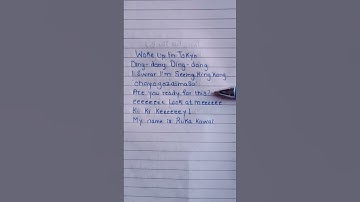 Woke Up Im Tokyo
Ding-dong Ding-dong
I Swear I'm Seeing King kong
ohayogozaimasu
Are you ready for this?
eeeeeeee Look at meeeeee
Ki Ki Keeeeeey L
My name is Ruka Kawai